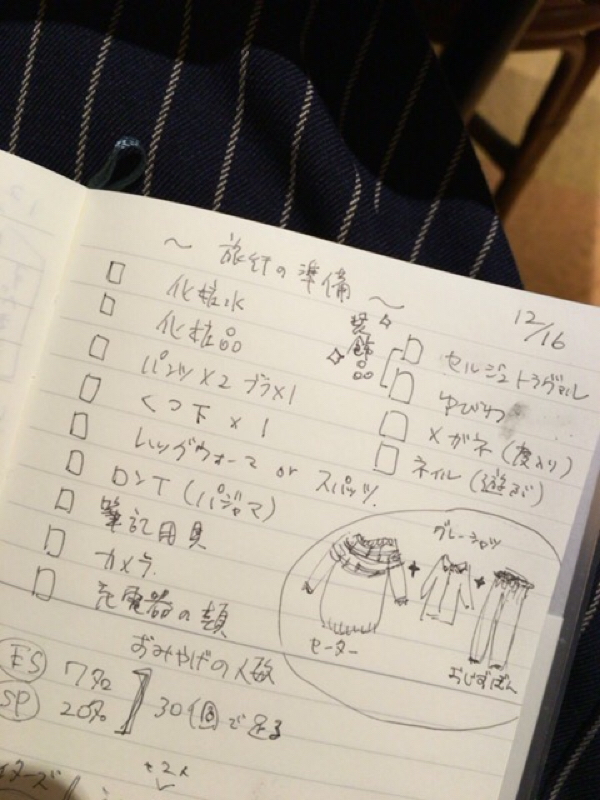 〜 旅行の準備 〜
12/16
化粧水
化粧品
パンツ×2 ブラ×1
くつ下 × 1
レッグウォーマ or スパッツ
ロンT (パジャマ)
筆記用具
カメラ
充電器の類
装飾品
セルジュ トラヴァル
ゆびわ
メガネ (度入り)
ネイル (遊び)
グレーシャツ
+
+
セーター
おじずぼん
おみやげの人数
ES 7名
SP 20名
30個で足る
+2人